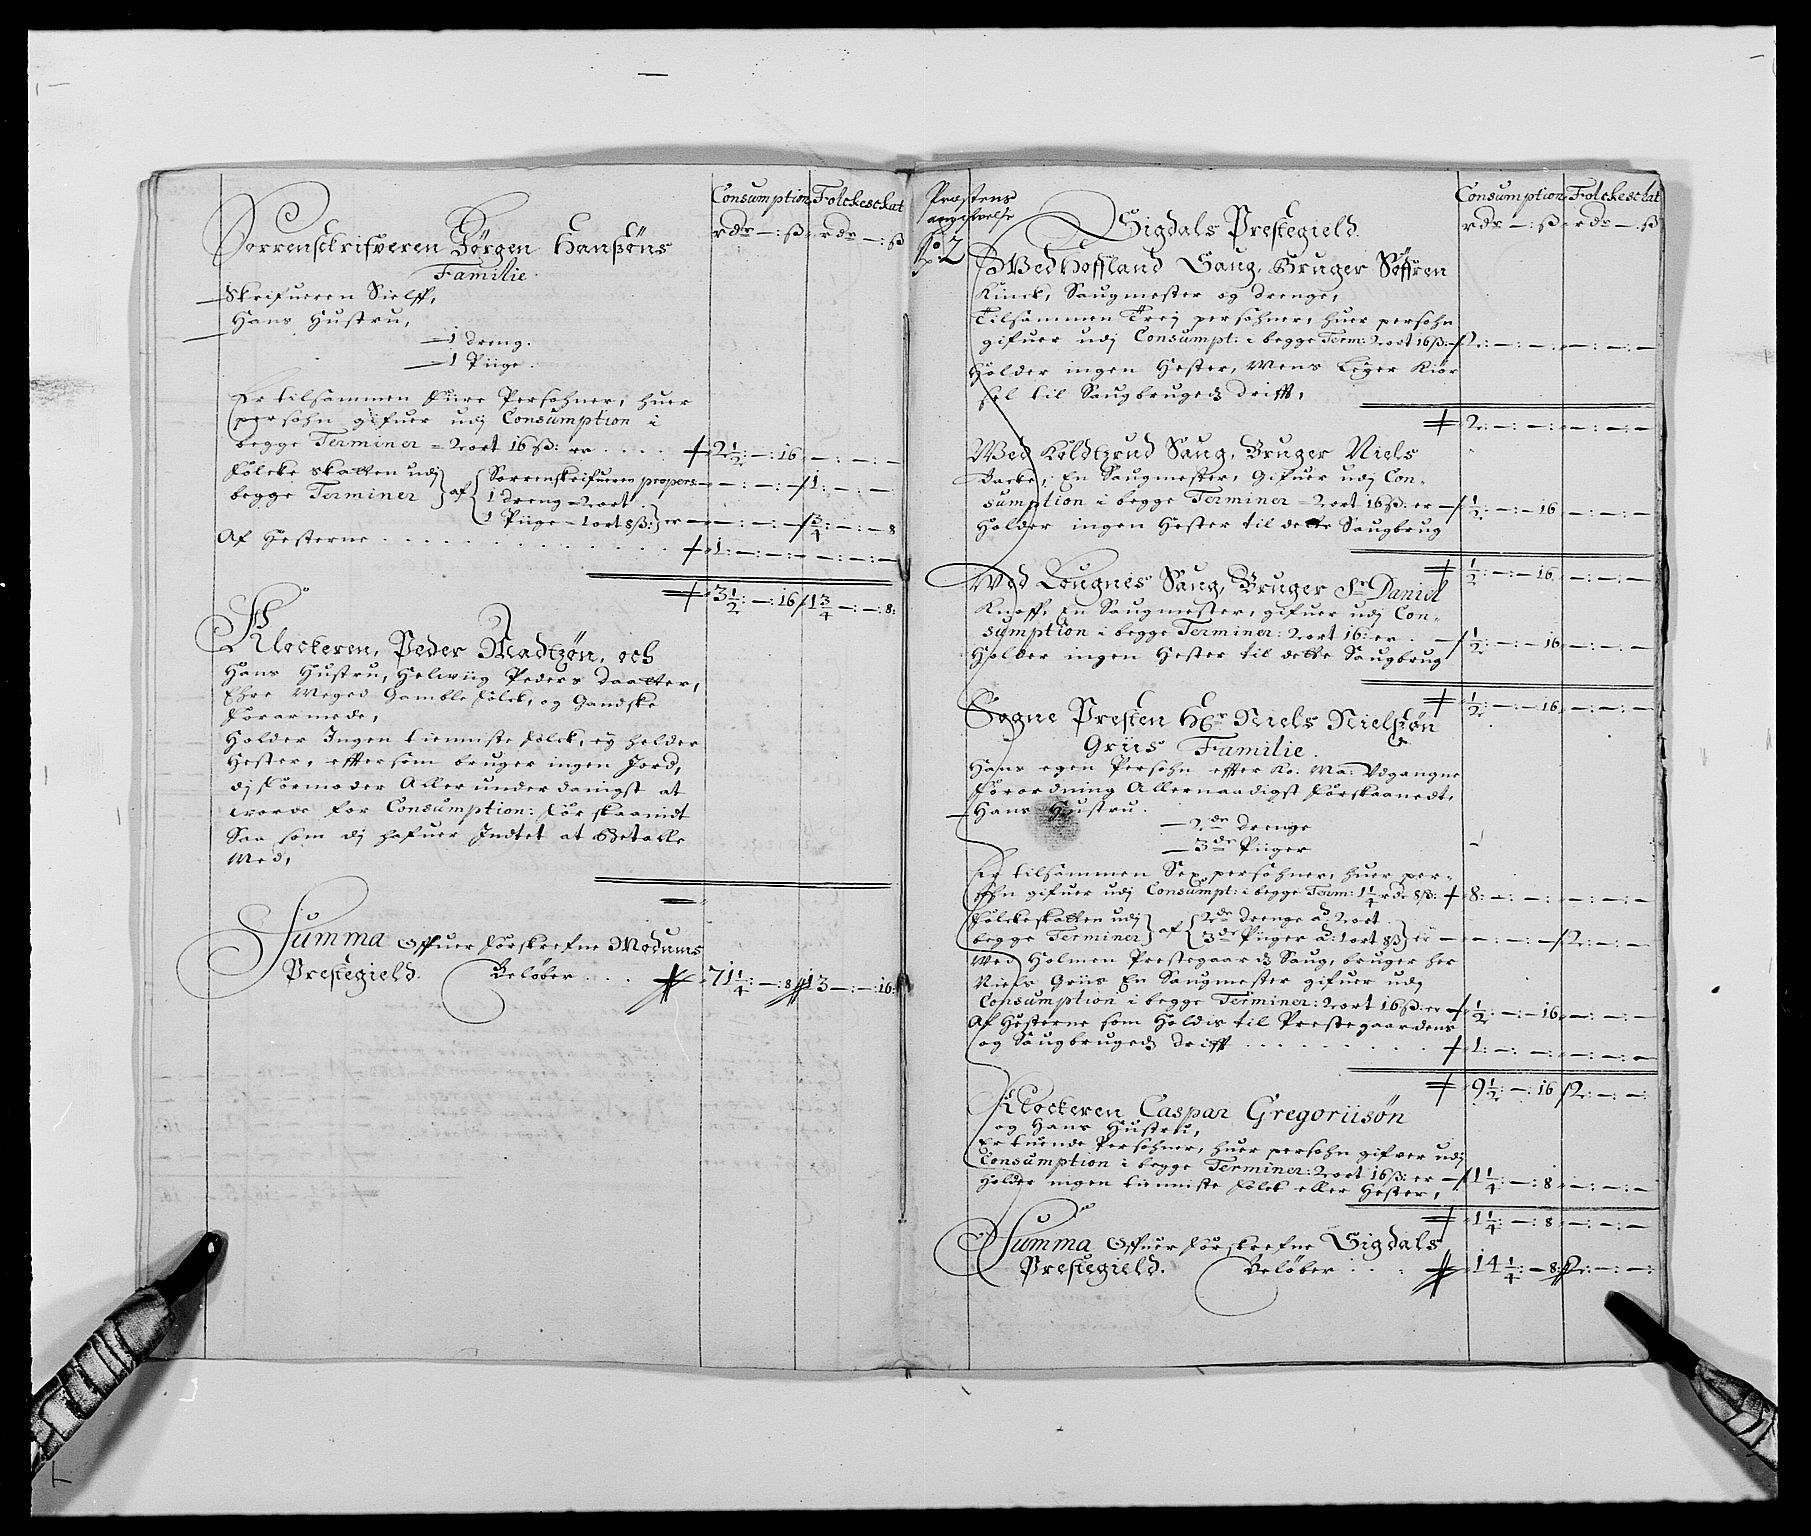 Consumption Folckeschat
rdr — : ß rdr — : ß
Sorrenschrifveren Jörgen Hanßöns
Familie.
Skrifueren Sielff,
Hans Hustru,
1 dreng.
1 Piige.
Er tilsammen fiire Persohner, huer
persohn gifuer udj Consumption i
begge Terminer = 2 ort 16 ß: er . . . . 2 1/2 : — : 16 — : — : —
folcke skatten udj
begge Terminer } af { Sorrenskrifueren propers: — : — : — 1 : — : —
1 dreng = 2 ort
1 Piige = 1 ort 8 ß: } er — : — : — 3/4 : — : 8
Af Hesterne . . . . . . . . . . 1 : — : — — : — : —
3 1/2 : — : 16 1 3/4 — : — : 8 :
Klockeren, Peder Madtzøn, och
Hans Hustru, Helwiig Peders daatter,
Ehre Meged Gamble folck, og Gandske
forarmede,
Holder Ingen tienniste folck, ej heller
Hester, efftersom bruger ingen Jord,
dj formoder Allerunderdanigst at
worde for Consumption: forskaanidt
Saa som dj hafuer Indtet at Betalle
Med,
Summa Offuer forskrefne Modums
Prestegield. Beløber . . . 71 1/4 : — : 8 13 — : — 16 :
Præstens
angifvelse
No: 2
Consumption Folckeschat
rdr — : ß rdr — : ß
Sigdals Prestegield.
Wed Hoffland Saug, Bruger Söffren
Kinck, Saugmester og drenge,
Tilsammen Trej persohner, huer persohn
gifuer udj Consumpt: i begge Term: 2 ort 16 ß: 2 : — : — — : — : —
Holder ingen Hester, Mens Leyer Kiör
sel til Saugbrugeds drifft,
2 : — : — — : — : —
Wed Koldtzrud Saug, Bruger Niels
Backe, En Saugmester, Gifuer udj Con-
sumption i begge Terminer = 2 ort 16 ß: er 1/2 : — : 16 — : — : —
Holder ingen Hester til dette Saugbrug
1/2 : — : 16 — : — : —
Wed Lougnes Saug, Bruger Sr Daniel
Knoff, En Saugmester, gifuer udj Con-
sumption i begge Terminer: 2 ort 16: er . 1/2 : — : 16 — : — : —
Holder ingen Hester til dette Saugbrug
1/2 : — : 16 — : — : —
Sogne Presten Hr Niels Nielsøn
Griis Familie.
Hans egen Persohn effter Ko: Ma: Udgangne
forordning Allernaadigst forskaanedt,
Hans Hustru.
2de drenge
3de Piiger
Er tilsammen Sex persohner, huer per-
sohn gifuer udj Consumpt: i begge Term: 1 1/4 rdr 8 ß: 8 : — : — — : — : —
folckeskatten udj
begge Terminer } af { 2de drenge ad: 2 ort
3de Piiger ad: 1 ort 8 ß } er — : — : — 2 : — : —
Wed Holmen Prestegaards Saug, bruger her
Niels Griis En Saugmester gifuer udj
Consumption i begge Terminer: 2 ort 16 ß: er 1/2 : — : 16 — : — : —
Af Hesterne som Holdis til Prestegaardens
og Saugbrugeds drifft . . . . . . . . . 1 : — : — — : — : —
9 1/2 : — : 16 2 : — : —
Klockeren Caspar Gregoriisøn
og Hans Hustru,
Er tuende Persohner, huer persohn gifver udj
Consumption i begge Terminer: 2 ort 16 ß: er 1 1/4 : — : 8 — : — : —
Holder ingen tienniste folck eller Hester,
1 1/4 : — : 8 — : — : —
Summa Offuer forskrefne Sigdals
Prestegield. Beløber . . . 14 1/4 : — 8 : 2 : — : — :